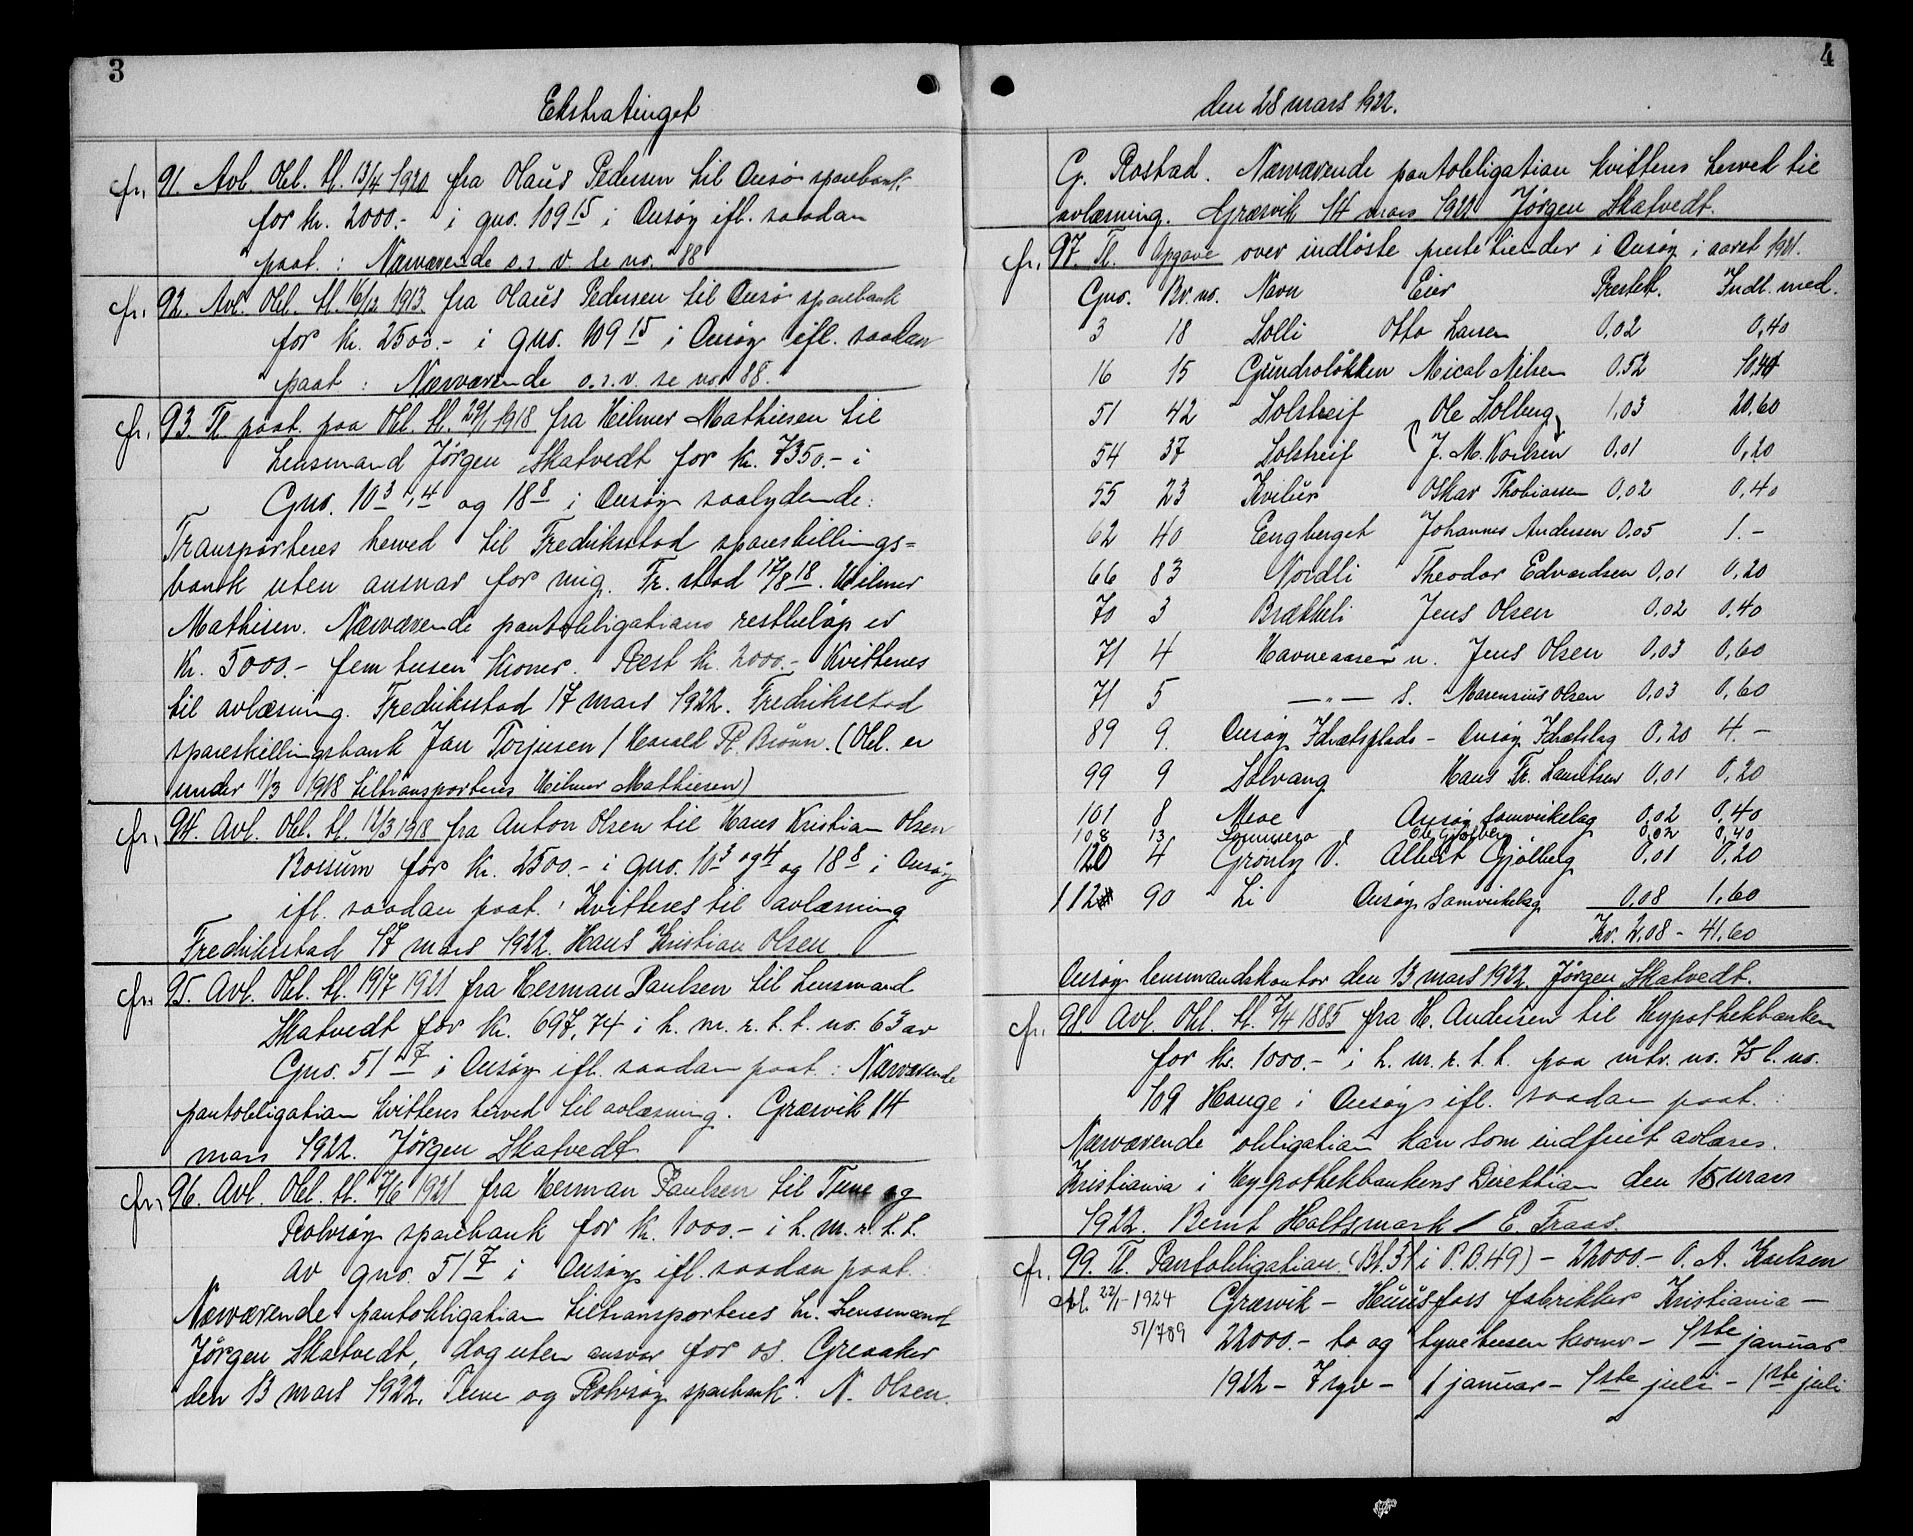 3
Ekstratinget
fr. 91. Avl. Obl. tl. 13/4 1920 fra Olaus Pedersen til Onsø sparebank
for kr. 2000.- i gno. 109 15 i Onsøy ifl. saadan
paat.: Nærværende o.s.v. se no. 88
fr. 92. Avl. Obl. tl. 16/12 1913 fra Olaus Pedersen til Onsø sparebank
for kr. 2500.- i gno. 109 15 i Onsøy ifl. saadan
paat: Nærværende o.s.v. se no. 88.
fr. 93. Tl. paat. paa Obl. tl. 29/1 1918 fra Hilmer Mathiesen til
Lensmand Jørgen Skatvedt for kr. 7350.- i
Gno. 10 3, 4 og 18 8 i Onsøy saalydende:
Transporteres herved til Fredriksstad spareskillings=
bank uten ansvar for mig. Fr.stad 17/8 18. Hilmer
Mathisen. Nærværende pantobligations restbeløp er
Kr. 5000.- fem tusen kroner. Rest kr. 2000.- Kvitteres
til avlæsning. Fredriksstad 17 mars 1922. Fredriksstad
spareskillingsbank Jan Torjusen / Harald Pl. Bruun. (Obl. er
under 11/3 1918 tiltransporteres Hilmer Mathiesen)
fr. 94. Avl. Obl. tl. 12/3 1918 fra Anton Olsen til Hans Kristian Olsen
Borsum for kr. 2500.- i gno. 10 3 og 4 og 18 8 i Onsøy
ifl. saadan paat.: Kvitteres til avlæsning
Fredriksstad 17 mars 1922. Hans Kristian Olsen.
fr. 95. Avl. Obl. tl. 19/7 1921 fra Herman Paulsen til Lensmand
Skatvedt for kr. 697,74 i h. m. r. t. t. no. 63 av
Gno. 51 7 i Onsøy ifl. saadan paat.: Nærværende
pantobligation kvitteres herved til avlæsning. Græsvik 14
mars 1922. Jørgen Skatvedt
fr. 96. Avl. Obl. tl. 7/6 1921 fra Herman Paulsen til Tune og
Rolvsøy sparebank for kr. 1000.- i h. m. r. t. t.
av gno. 51 7 i Onsøy ifl. saadan paat.
Nærværende pantobligation tiltransporteres hr. Lensmand
Jørgen Skatvedt, dog uten ansvar for os. Greaaker
den 13 mars 1922. Tune og Rolvsøy sparebank. N. Olsen.
4
den 28 mars 1922.
G. Rostad. Nærværende pantobligation kvitteres herved til
avlæsning. Græsvik 14 mars 1922 Jørgen Skatvedt.
fr. 97. Tl. Opgave over indløste prestetiender i Onsøy i aaret 1921.
Gno. Br. no. Navn Eier Prestet. Indl. med.
3 18 Solli Otto Larsen 0,02 0,40
16 15 Grundroløkken Mical Nilsen 0,52 10,40
51 42 Solstreif Ole Solberg 1,03 20,60
54 37 Solstreif J. M. Karlsen 0,01 0,20
55 23 Kvilur Oskar Thobiassen 0,02 0,40
62 40 Engberget Johannes Andersen 0,05 1.-
66 83 Nordli Theodor Edvardsen 0,01 0,20
70 3 Brækkeli Jens Olsen 0,02 0,40
71 4 Havneaasen n. Jens Olsen 0,03 0,60
71 5 —„— s. Marensius Olsen 0,03 0,60
89 9. Onsøy Idrætsplads - Onsøy Idrætslag 0,20 4.-
99 9 Solvang Hans Fr. Lauritsen 0,01 0,20
101 8 Moe Onsøy Samvirkelag 0,02 0,40
108 13 Sommero Ole Gjølberg 0,02 0,40
120 4 Grønly V. Albert Gjølberg 0,01 0,20
112 90 Li Onsøy Samvirkelag 0,08 1,60
Kr. 2,08 - 41,60
Onsøy lensmandskontor den 13 mars 1922. Jørgen Skatvedt.
fr. 98 Avl. Obl. tl. 7/4 1885 fra H. Andersen til Hypothekbanken
for kr. 1000.- i h. m. r. t. t. paa mtr. no. 75 l. no.
109 Hauge i Onsøy ifl. saadan paat.:
Nærværende obligation kan som indfriet avlæses.
Kristiania i Hypothekbankens Direktion den 15 mars
1922. Bernt Holtsmark / E. Fraas.
fr. 99. Tl. Pantobligation. (Bl. 31 i P.B. 49) - 22000 - O. A. Karlsen
Avl. 22/1-1924 Græsvik - Huusfors fabrikker Kristiania -
51/789 22000.- to og tyve tusen kroner - 1ste januar
1922 - 7 syv - 1 januar - 1ste juli - 1ste juli